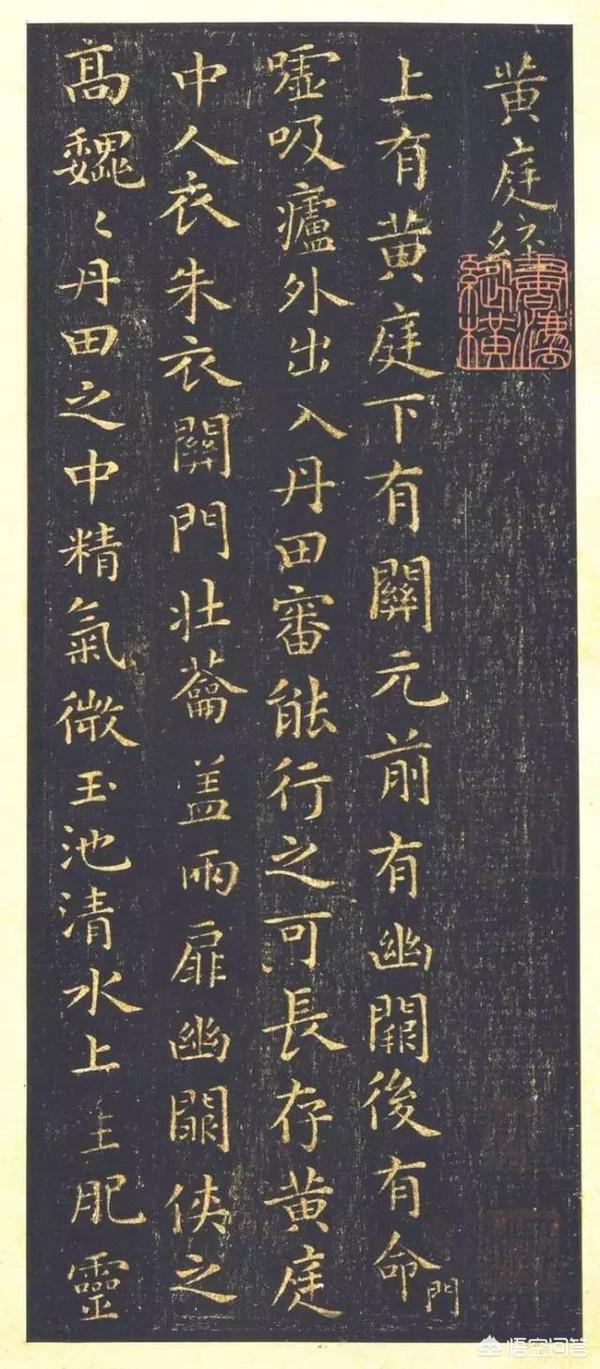 黄庭經
上有黄庭下有關元前有幽闕後有命門
嘘吸廬外出入丹田審能行之可長存黄庭
中人衣朱衣關門壯蘥盖兩扉幽闕俠之
高巍〻丹田之中精氣微玉池清水上生肥靈
悟空问答